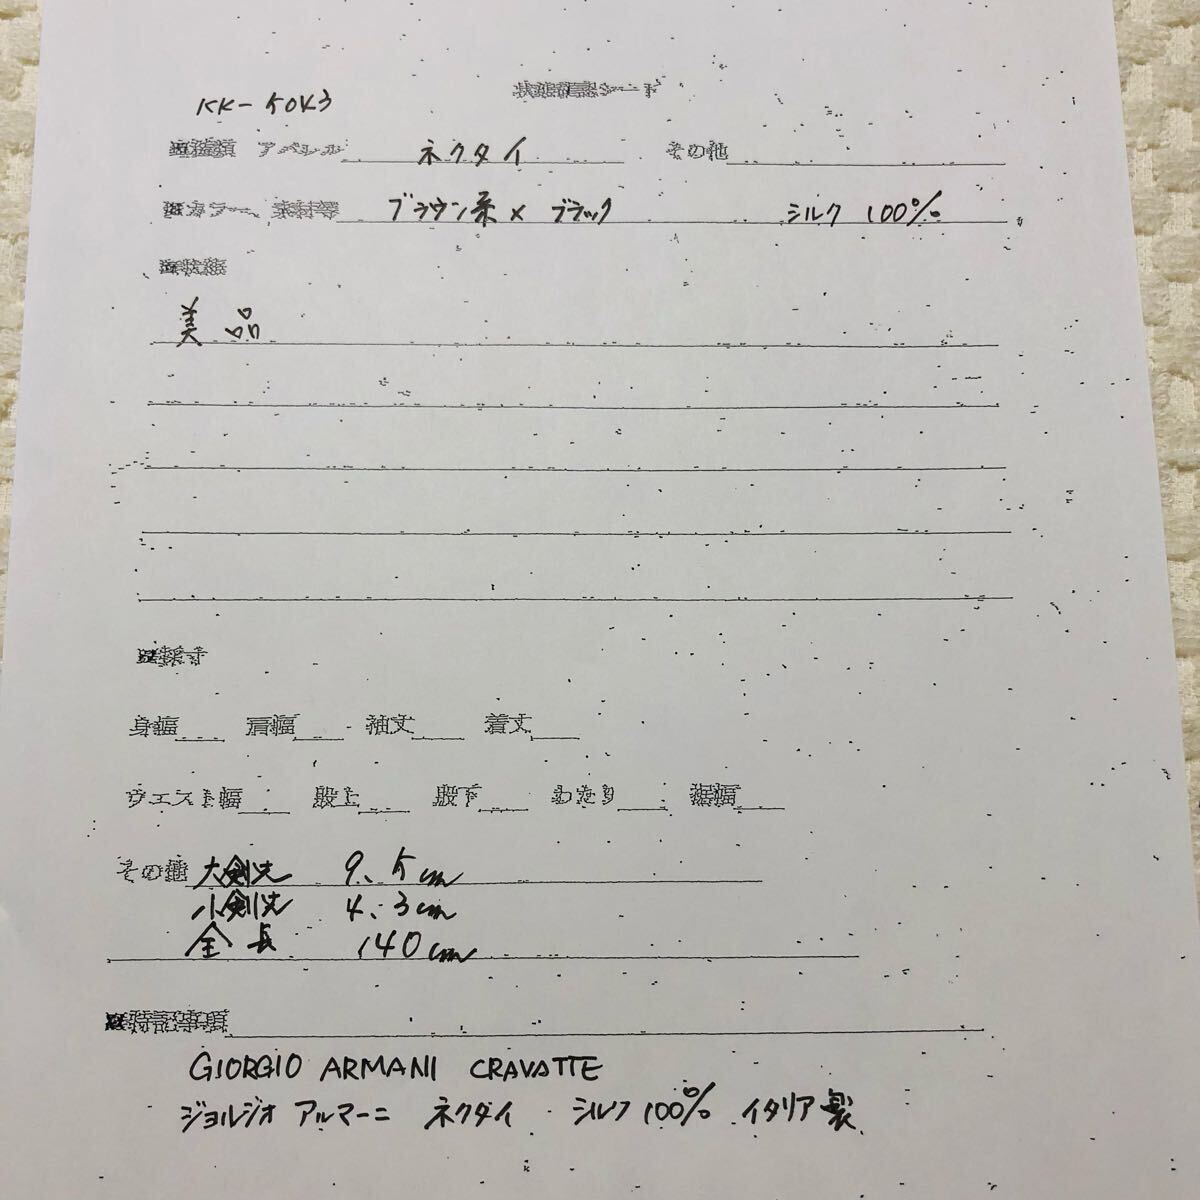 状態確認シート
KK-5053
■種類 アパレル ネクタイ その他
■カラー、素材等 ブラウン系 × ブラック シルク 100%
■状態
美品
■採寸
身幅 肩幅 袖丈 着丈
ウエスト幅 股上 股下 わたり 裾幅
その他 大剣先 9.5cm
小剣先 4.3cm
全長 140cm
■特記事項
GIORGIO ARMANI CRAVATTE
ジョルジオ アルマーニ ネクタイ シルク 100% イタリア製